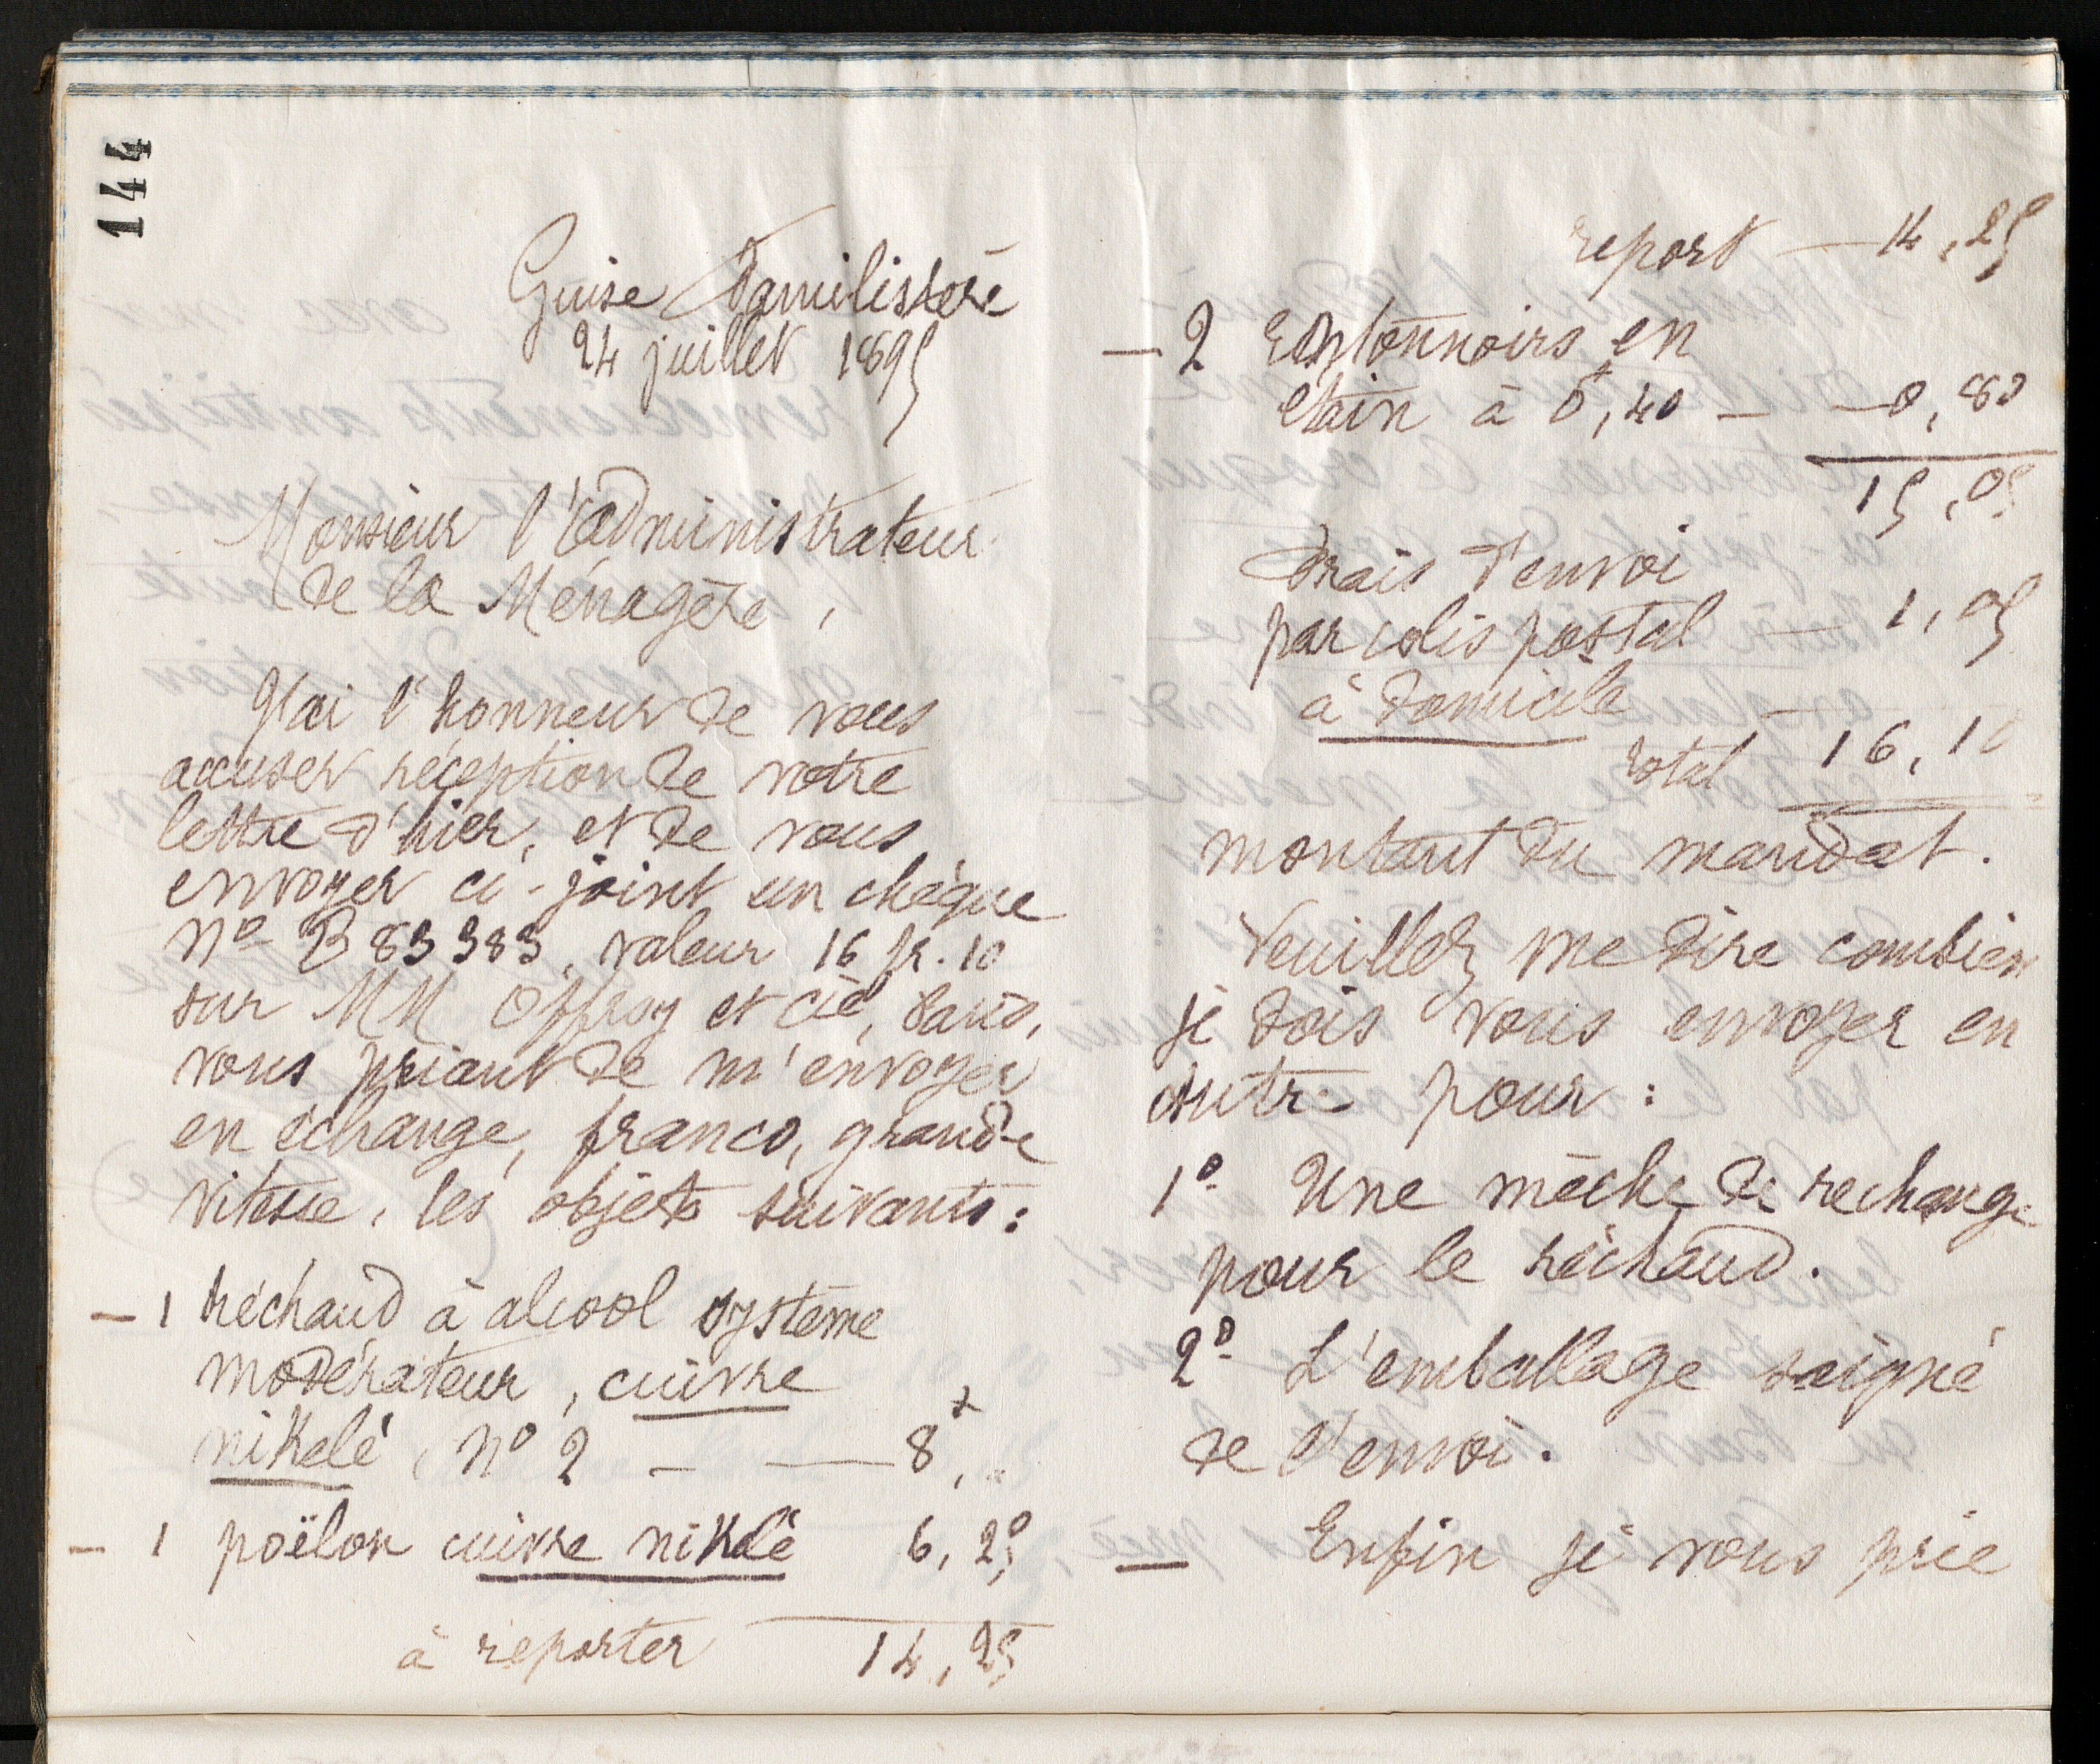 144
Guise Familistère
24 juillet 1895
Monsieur l'administrateur
de la Ménagère,
J'ai l'honneur de vous
accuser réception de votre
lettre d'hier, et de vous
envoyer ci-joint un chèque
No B 83383, valeur 16 fr. 10
sur MM Offroy et Cie, Paris,
vous priant de m'envoyer
en échange, franco, grande
vitesse, les objets suivants:
— 1 réchaud à alcool système
modérateur, cuivre
nikelé, No 2 — — 8,"
— 1 poëlon cuivre nikelé 6,25
à reporter 14,25
report — 14,25
— 2 Entonnoirs en
étain à 0,40 — — 0,80
15,05
Frais d'envoi
par colis postal — 1,05
à domicile
total 16,10
montant du mandat.
Veuillez me dire combien
je dois vous envoyer en
outre pour:
1o Une mèche de rechange
pour le réchaud.
2o L'emballage soigné
de l'envoi.
— Enfin je vous prie